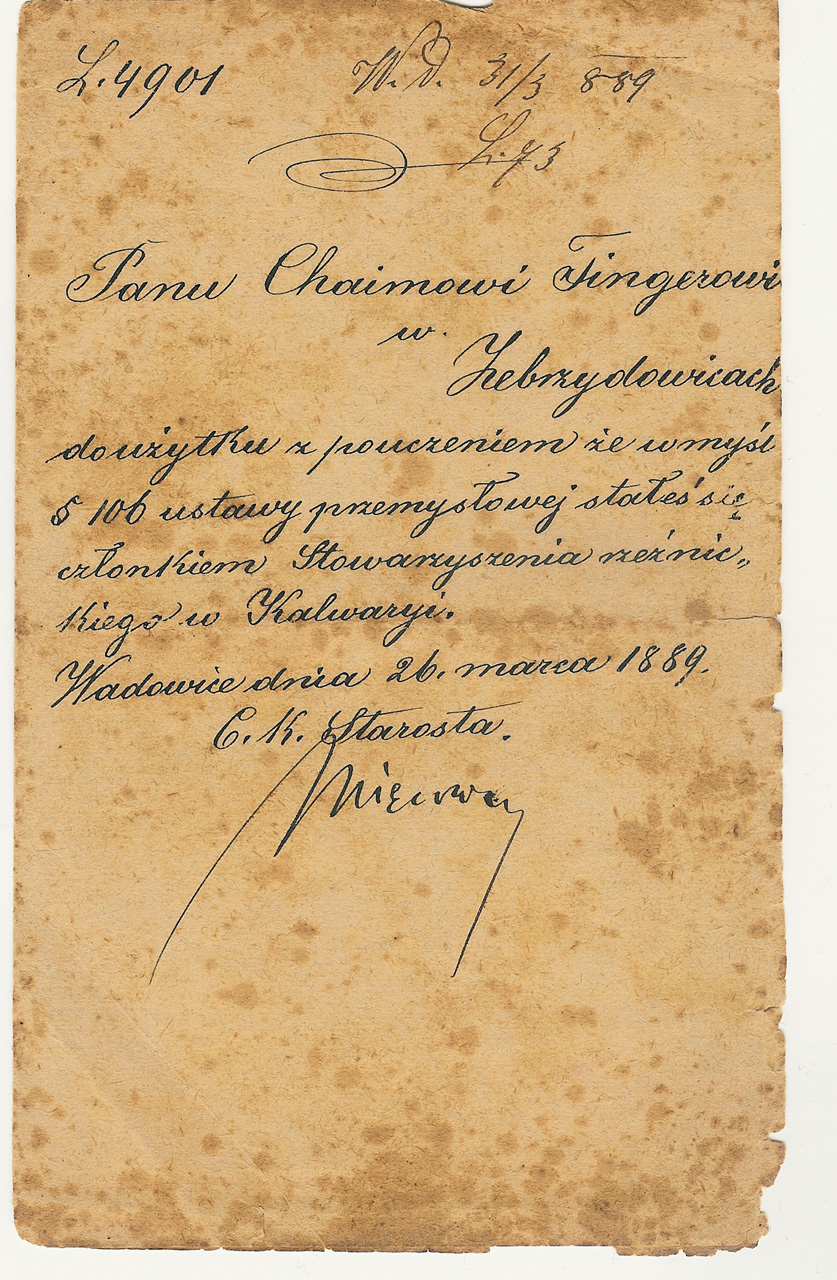 L. 4901 W. d. 31/3 889
L. 73
Panu Chaimowi Fingerowi
w.
Zebrzydowicach
do użytku z pouczeniem że w myśl
§ 106 ustawy przemysłowej stałeś się
członkiem Stowarzyszenia rzeźnic„
kiego w Kalwaryi.
Wadowice dnia 26. marca 1889.
C. K. Starosta.